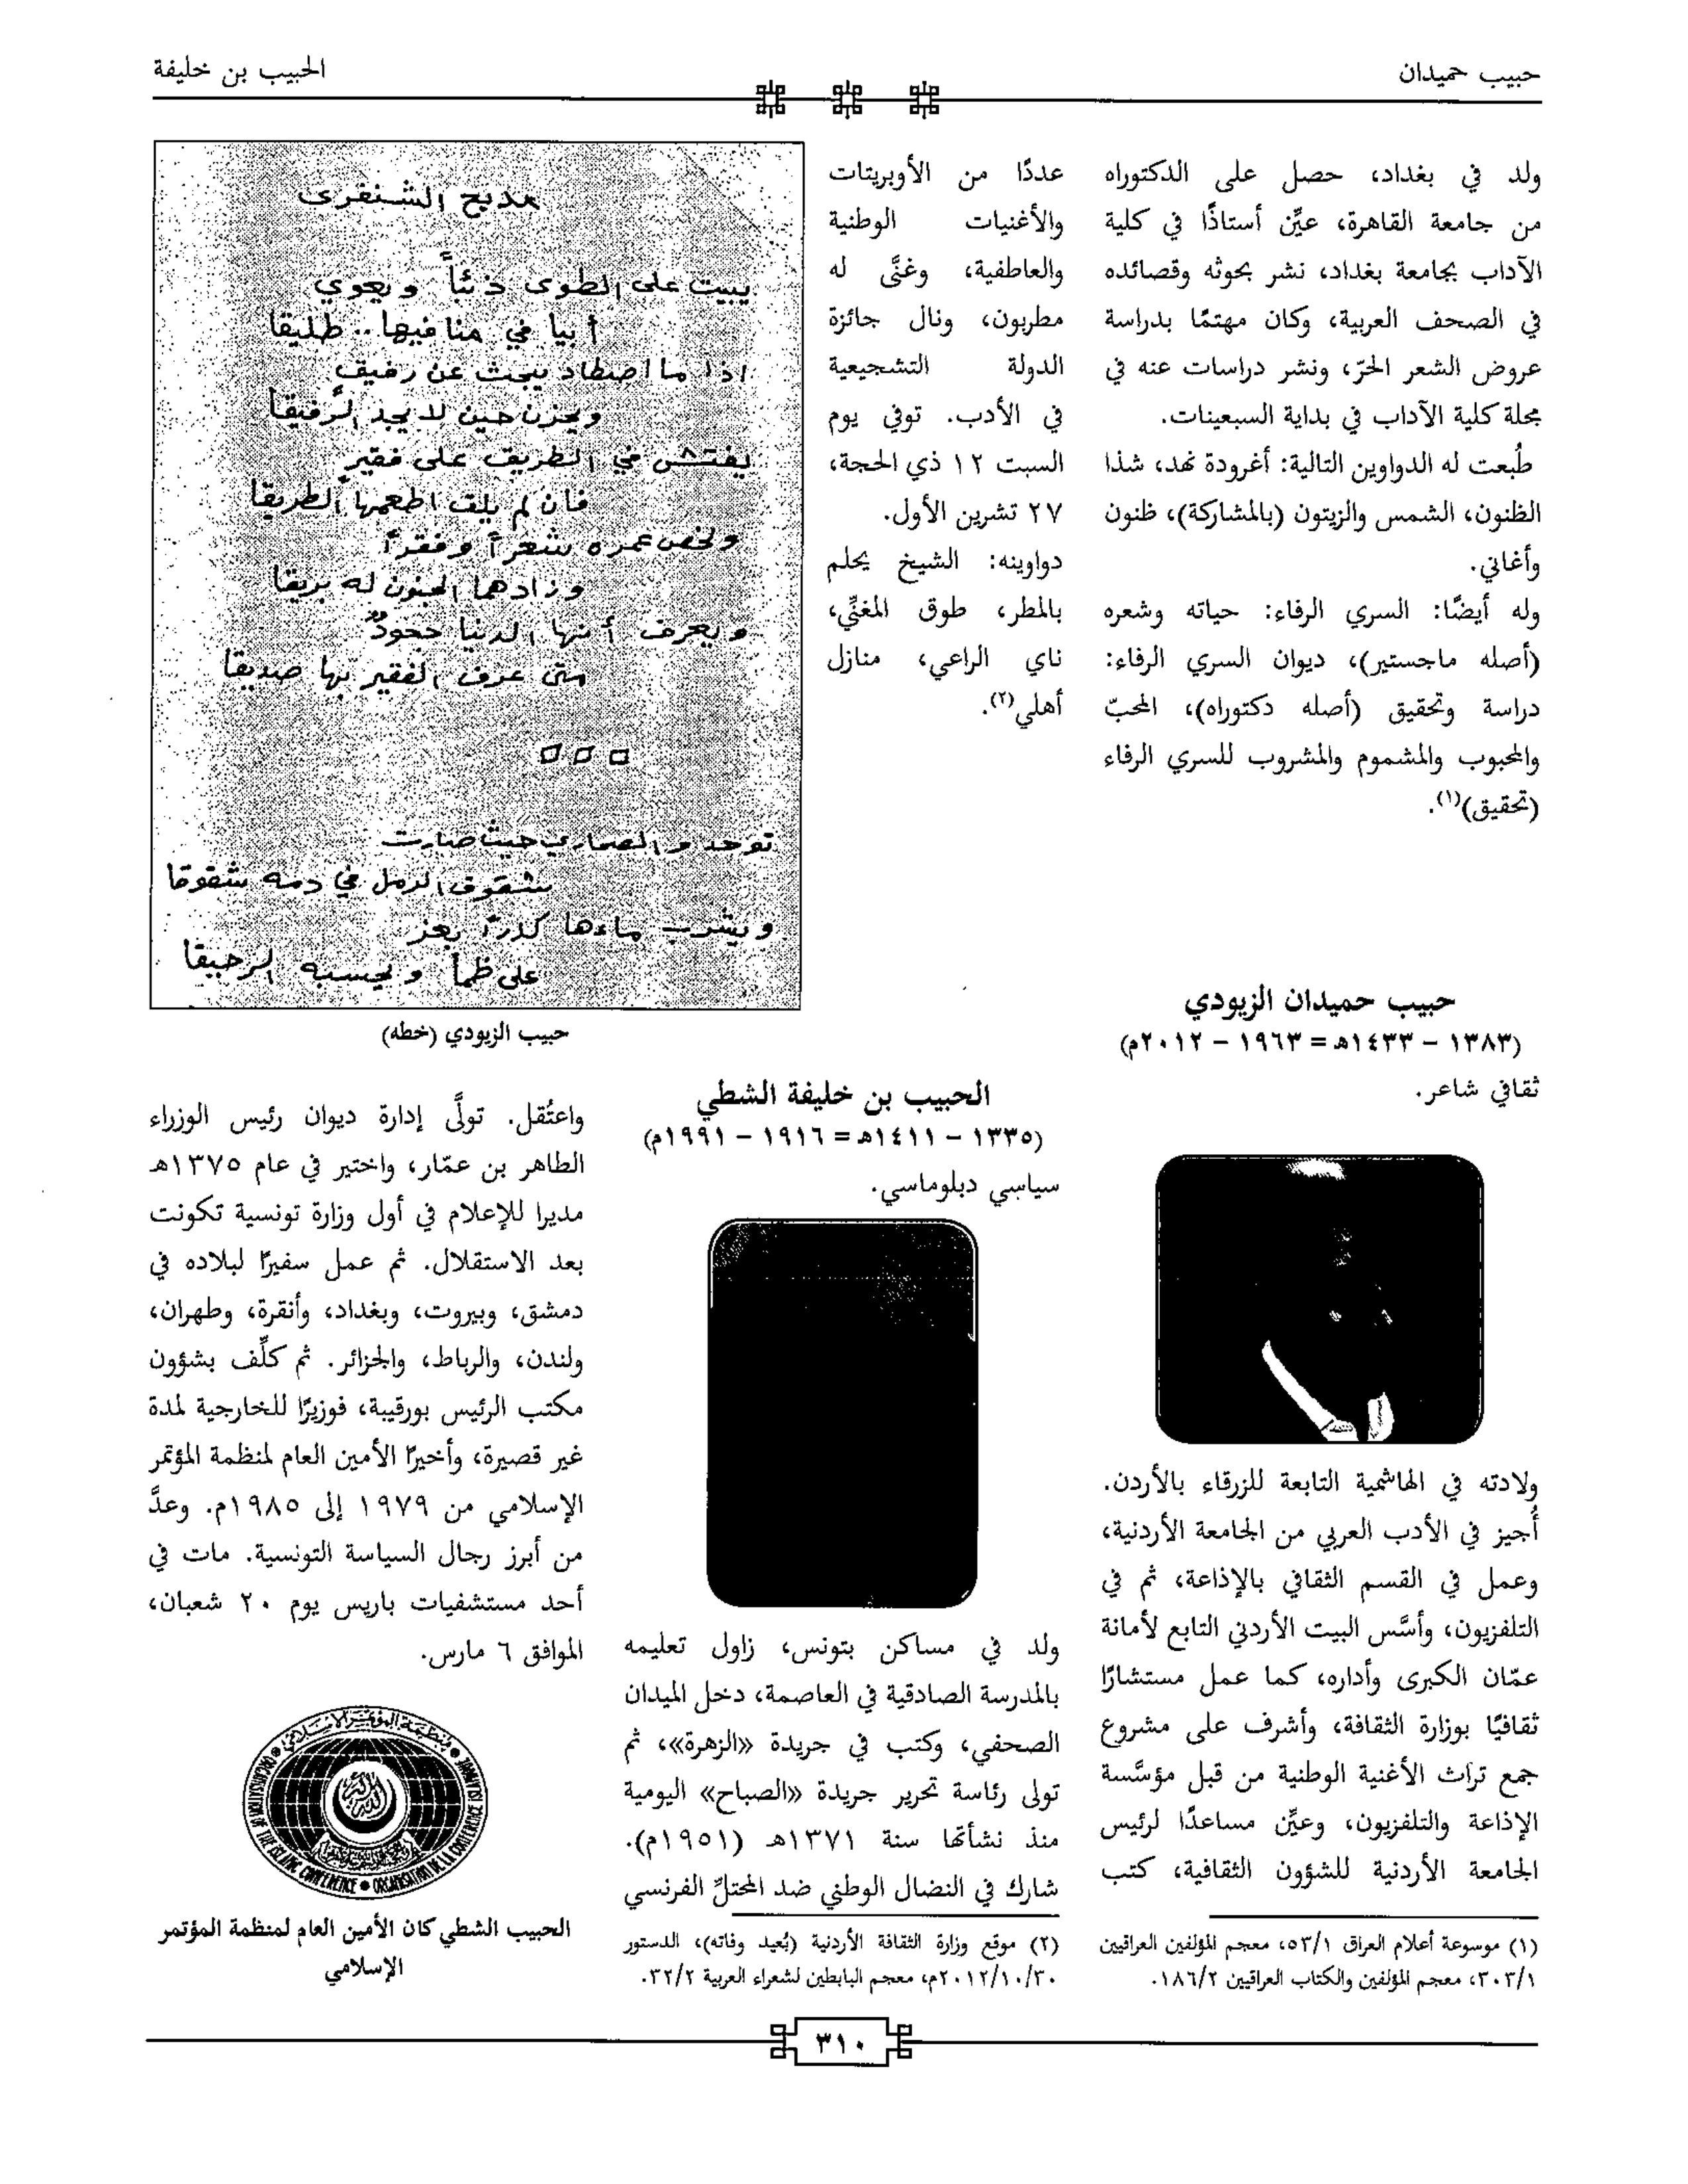 حبيب حميدان
الحبيب بن خليفة
ولد في بغداد، حصل على الدكتوراه
من جامعة القاهرة، عيِّن أستاذًا في كلية
الآداب بجامعة بغداد، نشر بحوثه وقصائده
في الصحف العربية، وكان مهتمًا بدراسة
عروض الشعر الحرّ، ونشر دراسات عنه في
مجلة كلية الآداب في بداية السبعينات.
طُبعت له الدواوين التالية: أغرودة نهد، شذا
الظنون، الشمس والزيتون (بالمشاركة)، ظنون
وأغاني.
وله أيضًا: السري الرفاء: حياته وشعره
(أصله ماجستير)، ديوان السري الرفاء:
دراسة وتحقيق (أصله دكتوراه)، المحبّ
والمحبوب والمشموم والمشروب للسري الرفاء
(تحقيق)(١).
حبيب حميدان الزيودي
(١٣٨٣ - ١٤٣٣هـ = ١٩٦٣ - ٢٠١٢م)
ثقافي شاعر.
ولادته في الهاشمية التابعة للزرقاء بالأردن.
أُجيز في الأدب العربي من الجامعة الأردنية،
وعمل في القسم الثقافي بالإذاعة، ثم في
التلفزيون، وأسَّس البيت الأردني التابع لأمانة
عمّان الكبرى وأداره، كما عمل مستشارًا
ثقافيًا بوزارة الثقافة، وأشرف على مشروع
جمع تراث الأغنية الوطنية من قبل مؤسَّسة
الإذاعة والتلفزيون، وعيِّن مساعدًا لرئيس
الجامعة الأردنية للشؤون الثقافية، كتب
(١) موسوعة أعلام العراق ٥٣/١، معجم المؤلفين العراقيين
٣٠٣/١، معجم المؤلفين والكتاب العراقيين ١٨٦/٢.
عددًا من الأوبريتات
والأغنيات الوطنية
والعاطفية، وغنَّى له
مطربون، ونال جائزة
الدولة التشجيعية
في الأدب. توفي يوم
السبت ١٢ ذي الحجة،
٢٧ تشرين الأول.
دواوينه: الشيخ يحلم
بالمطر، طوق المغنِّي،
ناي الراعي، منازل
أهلي(٢).
مديح الشنفرى
يبيت على الطوى ذئباً ويعوي
أبيا في منافيها.. طليقا
اذا ما اصطاد يبحث عن رفيق
ويحزن حين لا يجد الرفيقا
يفتش في الطريق على فقير
فان لم يلق اطعمها الطريقا
ولخص عمره شعراً وفقراً
وزادهما الجنون له بريقا
ويعرف أنها الدنيا جحودٌ
متى عرف الفقير بها صديقا
توحد والصحارى حيث صارت
شقوق الرمل في دمه شقوقا
ويشرب ماءها كدراً بعز
على ظمأ ويحسبه الرحيقا
حبيب الزيودي (خطه)
الحبيب بن خليفة الشطي
(١٣٣٥ - ١٤١١هـ = ١٩١٦ - ١٩٩١م)
سياسي دبلوماسي.
ولد في مساكن بتونس، زاول تعليمه
بالمدرسة الصادقية في العاصمة، دخل الميدان
الصحفي، وكتب في جريدة «الزهرة»، ثم
تولى رئاسة تحرير جريدة «الصباح» اليومية
منذ نشأتها سنة ١٣٧١هـ (١٩٥١م).
شارك في النضال الوطني ضد المحتلِّ الفرنسي
(٢) موقع وزارة الثقافة الأردنية (بُعيد وفاته)، الدستور
٢٠١٢/١٠/٣٠م، معجم البابطين لشعراء العربية ٣٢/٢.
واعتُقل. تولَّى إدارة ديوان رئيس الوزراء
الطاهر بن عمّار، واختير في عام ١٣٧٥هـ
مديرا للإعلام في أول وزارة تونسية تكونت
بعد الاستقلال. ثم عمل سفيرًا لبلاده في
دمشق، وبيروت، وبغداد، وأنقرة، وطهران،
ولندن، والرباط، والجزائر. ثم كلِّف بشؤون
مكتب الرئيس بورقيبة، فوزيرًا للخارجية لمدة
غير قصيرة، وأخيرًا الأمين العام لمنظمة المؤتمر
الإسلامي من ١٩٧٩ إلى ١٩٨٥م. وعدَّ
من أبرز رجال السياسة التونسية. مات في
أحد مستشفيات باريس يوم ٢٠ شعبان،
الموافق ٦ مارس.
منظمة المؤتمر الإسلامي
ORGANISATION OF THE ISLAMIC CONFERENCE • ORGANISATION DE LA CONFERENCE ISLAMIQUE
الحبيب الشطي كان الأمين العام لمنظمة المؤتمر
الإسلامي
٣١٠